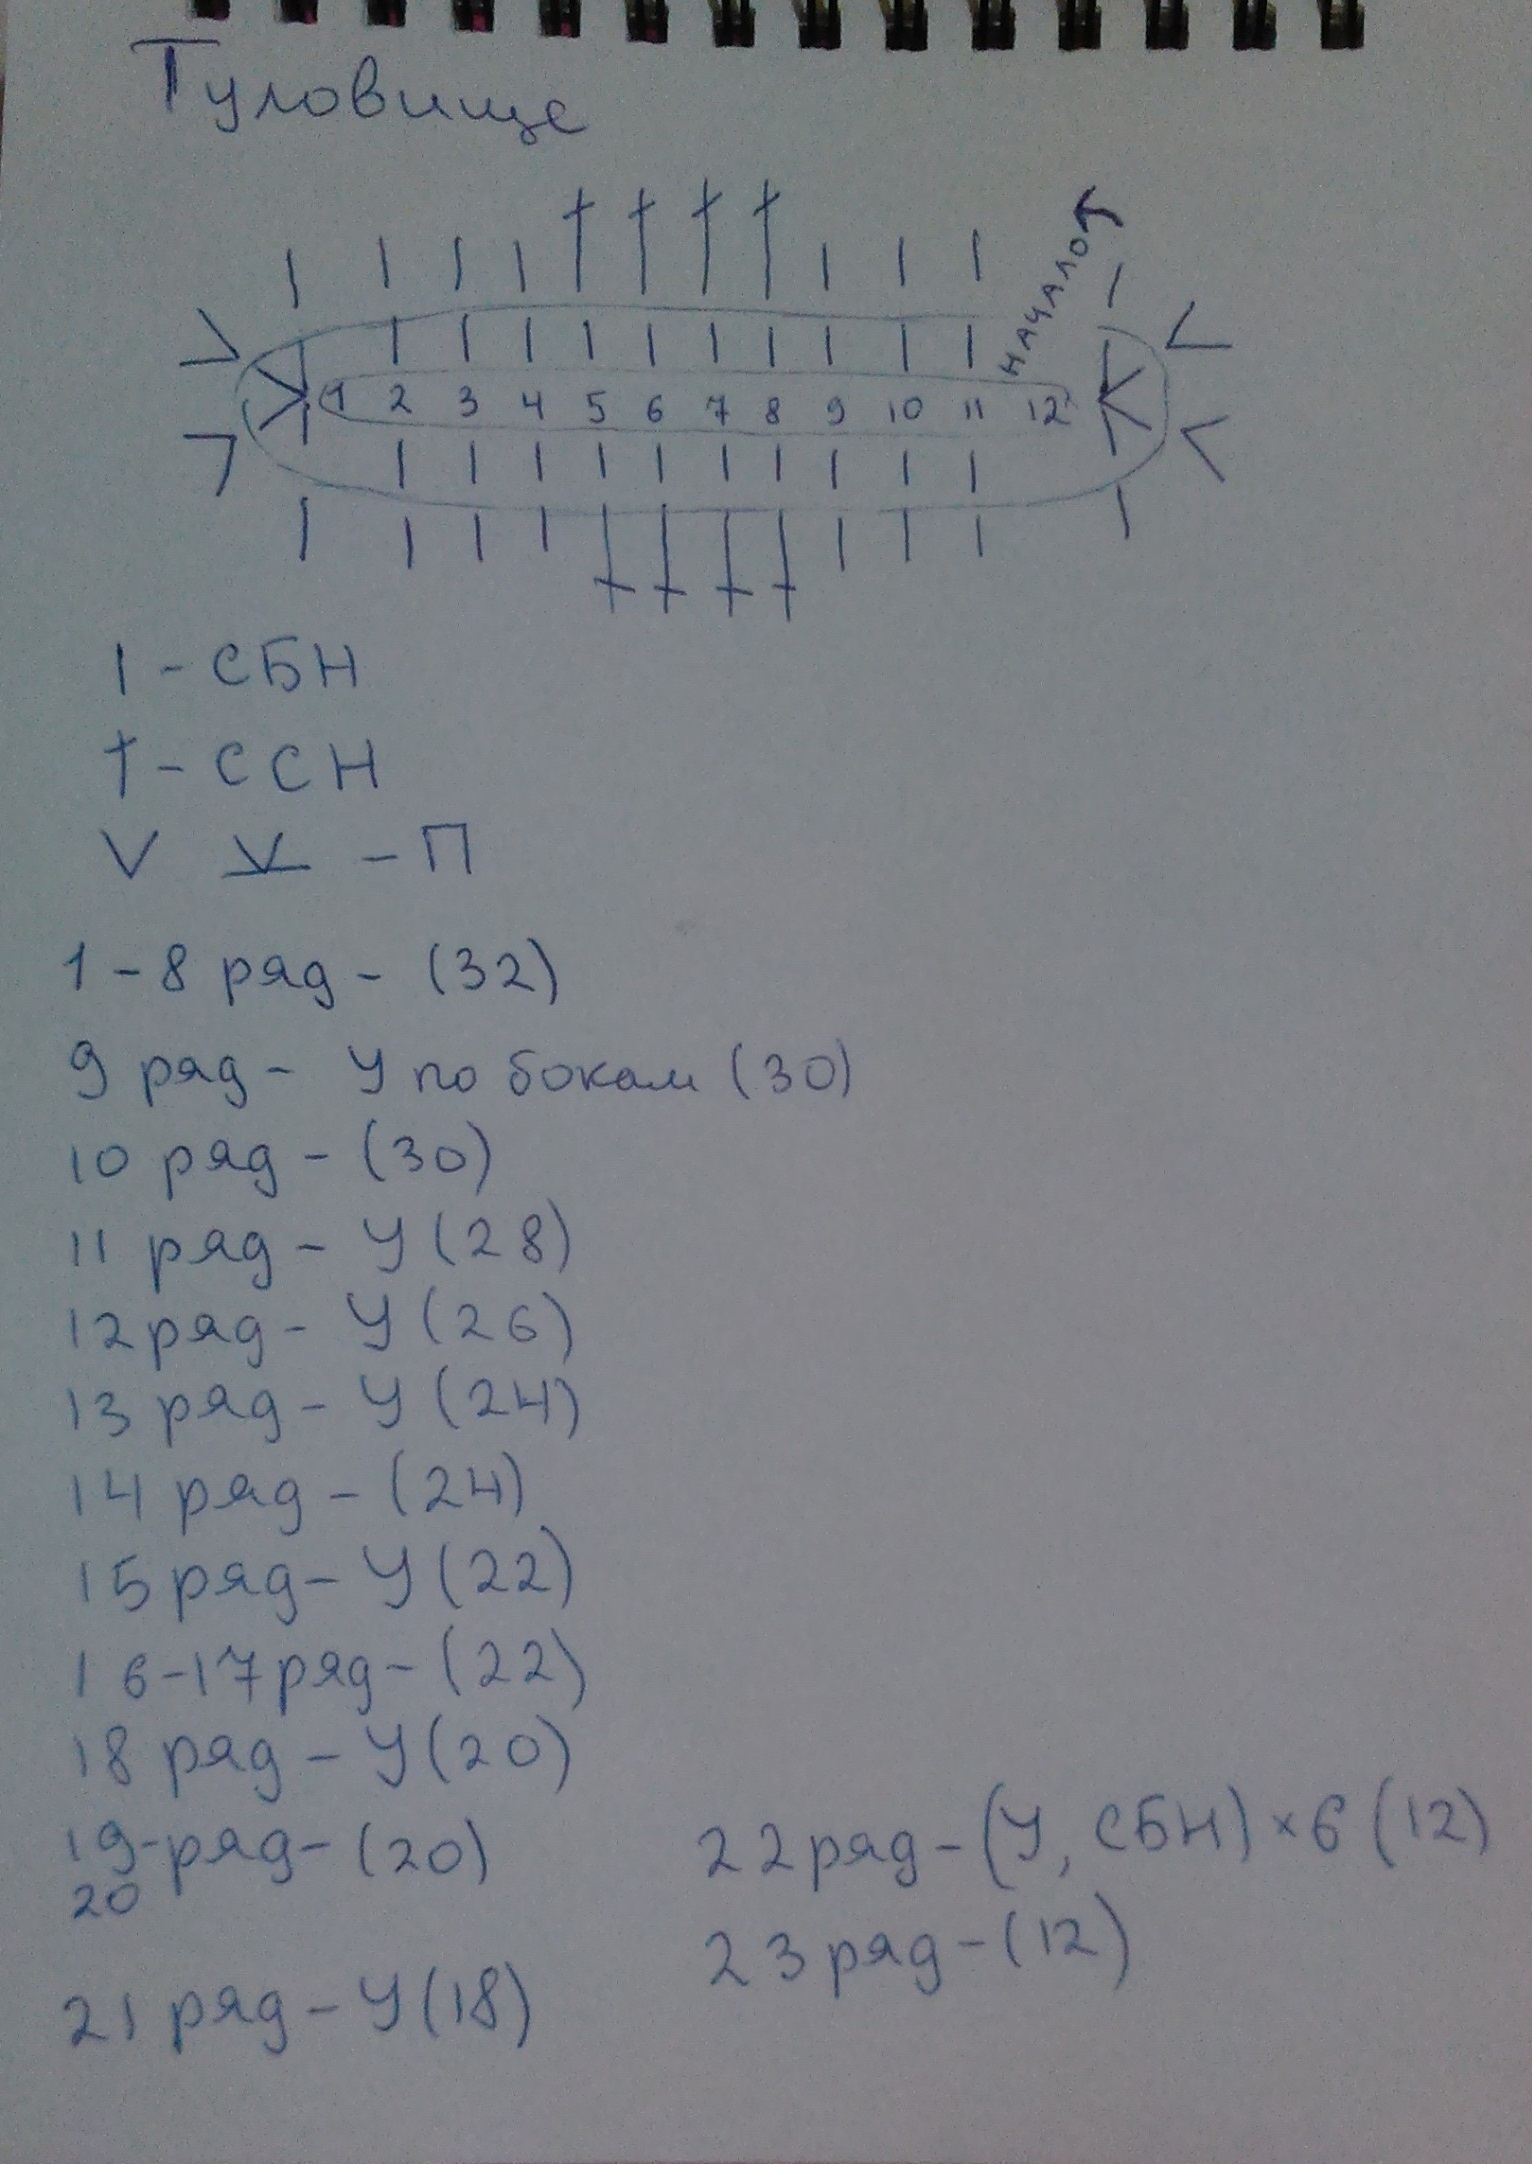 Туловище
начало
1 2 3 4 5 6 7 8 9 10 11 12
I - СБН
† - ССН
V V - П
1-8 ряд - (32)
9 ряд - У по бокам (30)
10 ряд - (30)
11 ряд - У (28)
12 ряд - У (26)
13 ряд - У (24)
14 ряд - (24)
15 ряд - У (22)
16-17 ряд - (22)
18 ряд - У (20)
19-ряд - (20)
20
21 ряд - У (18)
22 ряд - (У, СБН) × 6 (12)
23 ряд - (12)